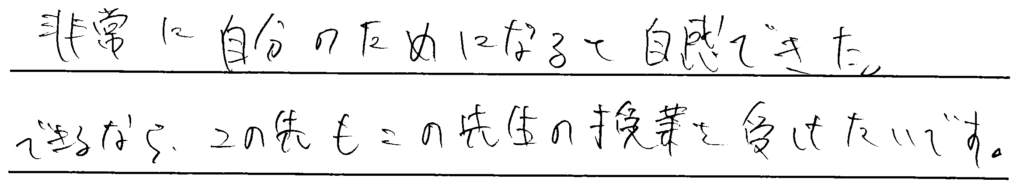 非常に自分のためになると自感できた。
できるなら、この先もこの先生の授業を受けたいです。